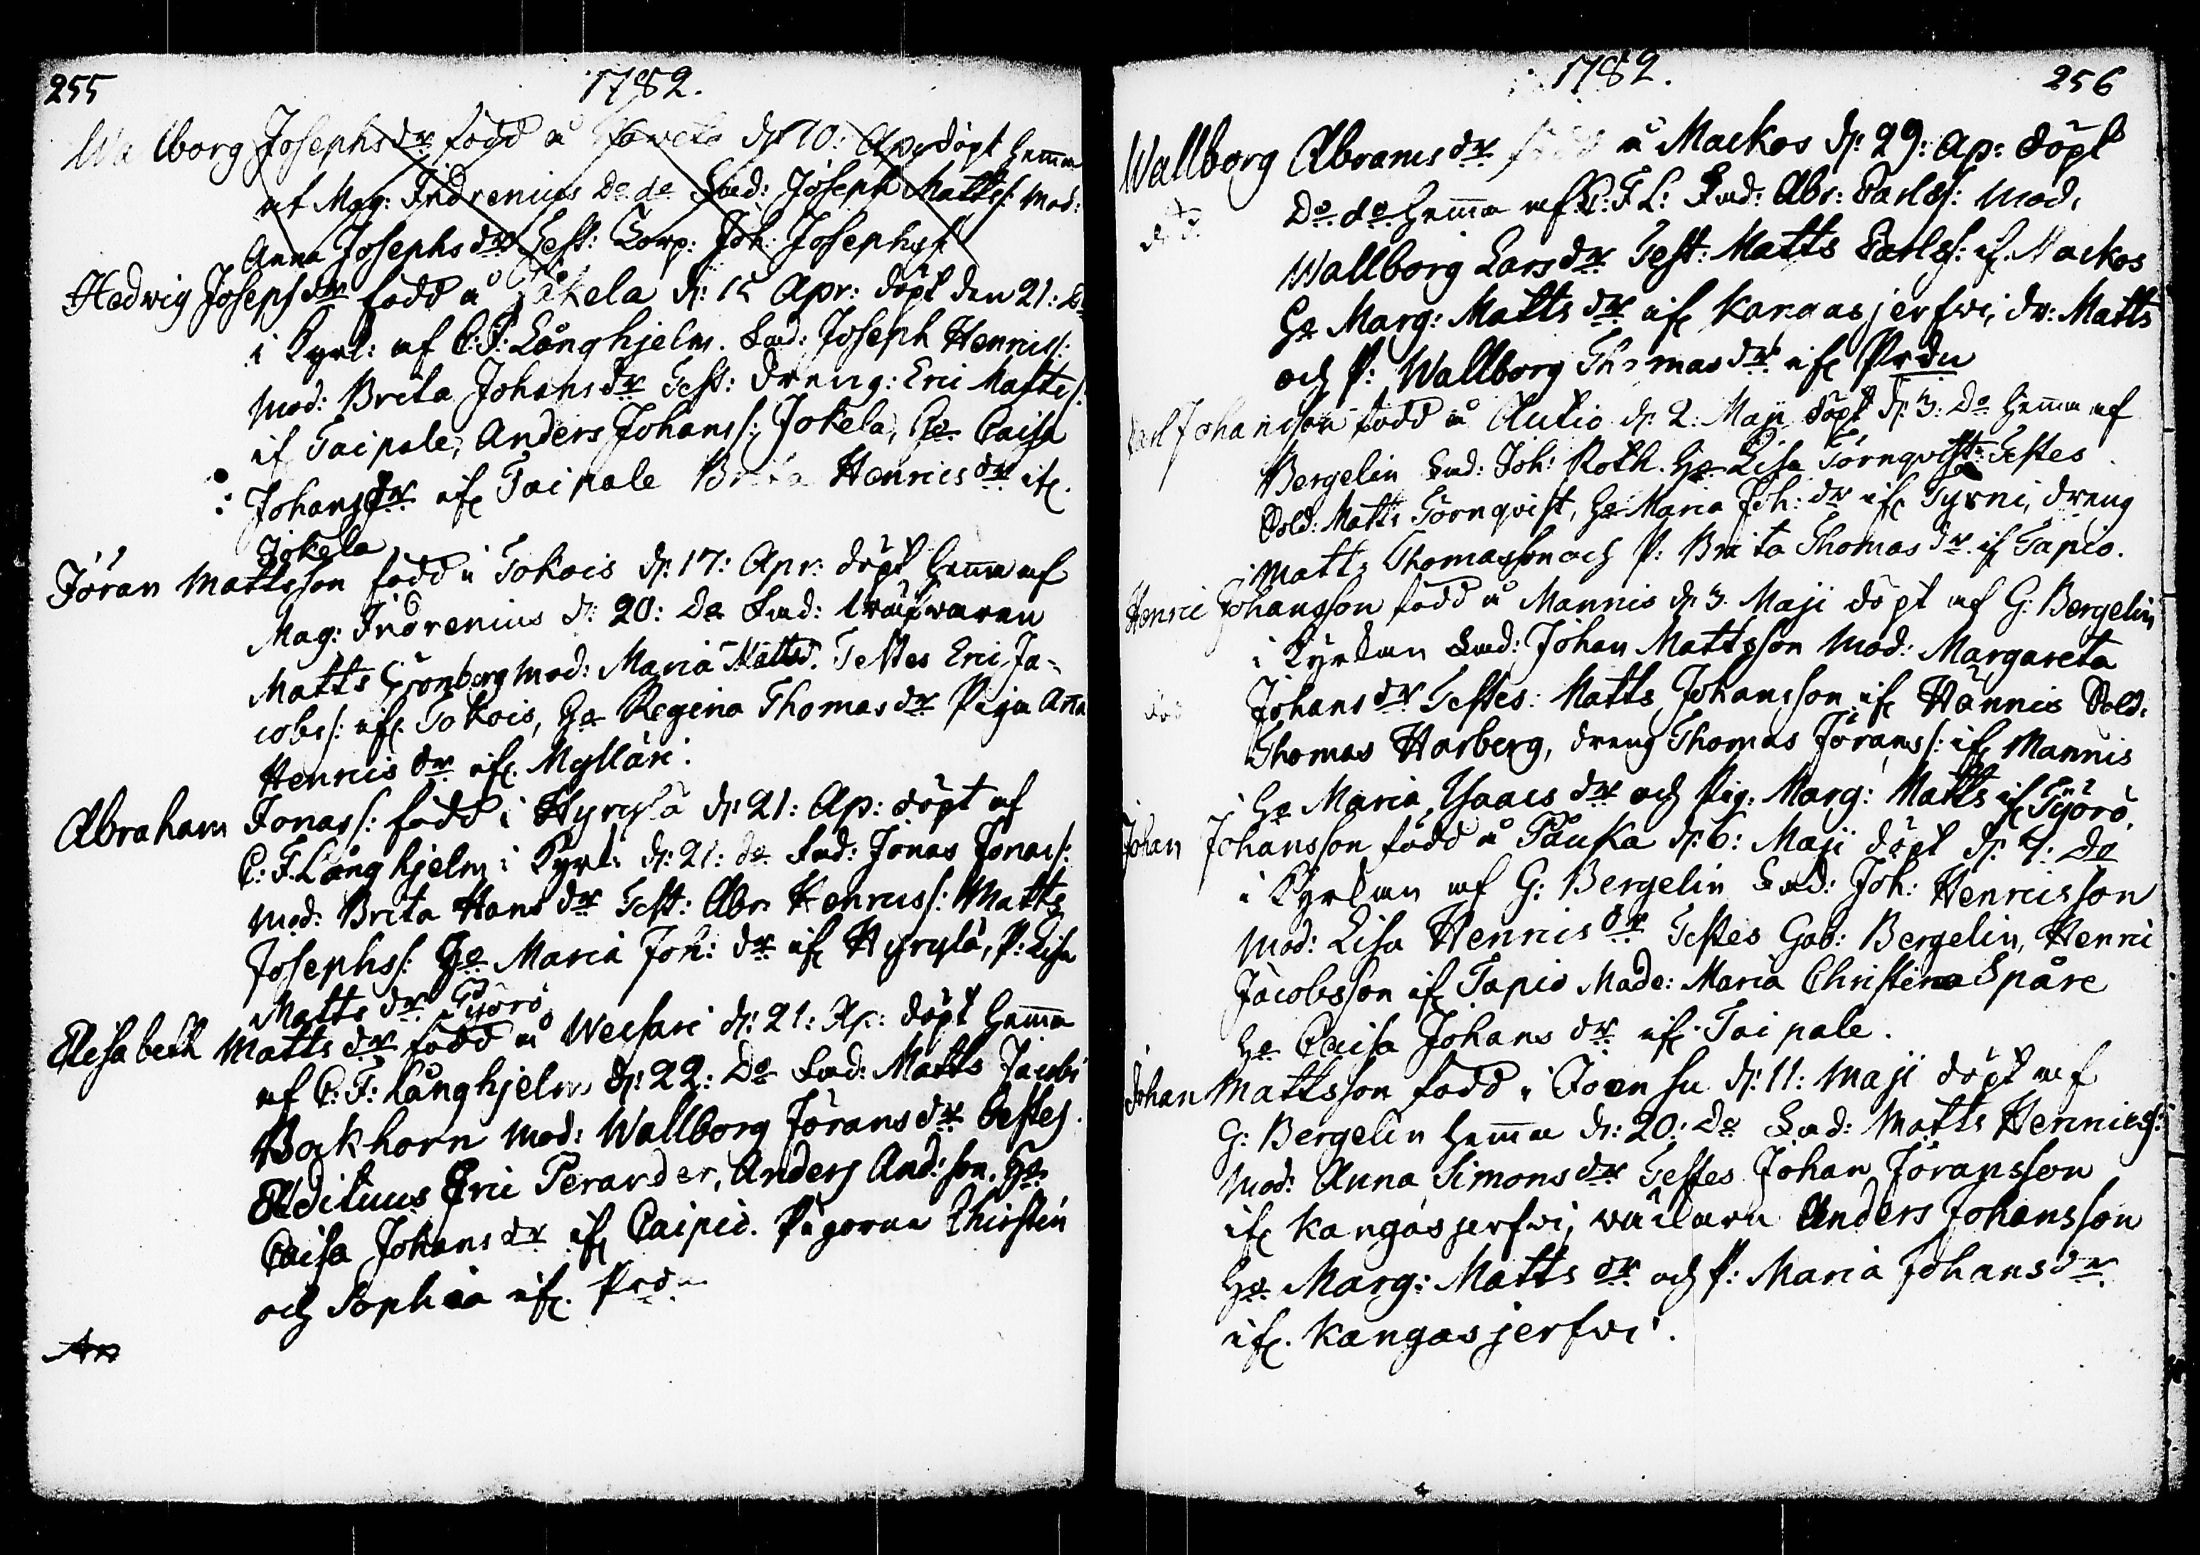 255
1782.
Wallborg Josephs dr född å d. 10: Apr: döpt hemma
af Mag: Indrenius Do do Fad: Joseph Matts/: Mod:
Anna Josephs dr Test: Corp: Joh: Josephs/:
Hedwig Josephs dr född å Jokela d: 15 Apr: döpt den 21: Do
i Kyrk: af C: F: Långhjelm. Fad: Joseph Henrics/:
Mod: Brita Johans dr Test: dreng: Eric Matts/:
if Taipale, Anders Johans/: Jokela, Ho Caisa
Johans dr if. Taipale Brita Henrics dr if.
Jokela
Jöran Mattsson född i Tokois d: 17: Apr: döpt hemma af
Mag: Indrenius d: 20: Do Fad:
Matts Grönberg Mod: Maria Mattsd. Testes Eric Ja-
cobs/: if. Tokois, Ho Regina Thomas dr Piga Anna
Henrics dr if. Mylläri.
Abraham Jonas/: född i Hyrylä d: 21: Ap: döpt af
C: F. Långhjelm i Kyrk: d: 21: do Fad: Jonas Jonas/:
Mod: Brita Hans dr Test: Abr: Henrics/: Matts
Josephs/: Ho Maria Joh: dr if Hyrylä, P: Lisa
Matts dr Työrö
Elisabeth Matts dr född å Weifari d: 21: Ap: döpt hemma
af C: F: Långhjelm d: 22: Do Fad: Matts Jacobs
Bokhorn Mod: Wallborg Jörans dr Testes.
Ædituus Eric Perander, Anders And: son, Ho
Caisa Johans dr if Caipio. Pigorna Chirstin
och Sophia if. Prdn
An
1782.
256
Wallborg Abrams dr född å Mackos d: 29: Ap: döpt
Do do hemma af C: F L: Fad: Abr: Carls/: Mod.
död.
Wallborg Lars dr Test: Matts Carls/: if. Mackos
Ho Marg: Matts dr if Kangasjerfwi, dr: Matts
och P: Wallborg Thomas dr if Prdn
Carl Johansson född å Autio d: 2: Maji döpt d: 3: Do hemma af
Bergelin Fad: Joh: Roth. Ho Lisa Törnqvist: Testes
Sold: Matts Törnqvist, Ho Maria Joh: dr if Tyrni, dreng
Matts Thomasson och P: Brita Thomas dr if Tapio.
Henric Johansson född å Mannis d: 3. Maji döpt af G: Bergelin
i Kyrkan Fad: Johan Mattsson Mod: Margareta
död
Johans dr Testes: Matts Johansson if Hannis Sold:
Thomas Harberg, dreng Thomas Jörans/: if Mannis
Ho Maria Ysaacs dr och Pig: Marg: Matts if Työrö.
Johan Johansson född å Pauka d: 6: Maji döpt d: 7: Do
i Kyrkan af G: Bergelin Fad: Joh: Henricsson
Mod: Lisa Henrics dr Testes Gab: Bergelin, Henric
Jacobsson if Tapio Made: Maria Christina Spåre
Ho Caisa Johans dr if. Taipale.
Johan Mattsson född i Joensu d: 11: Maji döpt af
G: Bergelin hemma d: 20: Do Fad: Matts Henrics/:
Mod: Anna Simons dr Testes Johan Jöransson
if Kangasjerfwi, Anders Johansson
Ho Marg: Matts dr och P: Maria Johans dr
if. Kangasjerfwi.